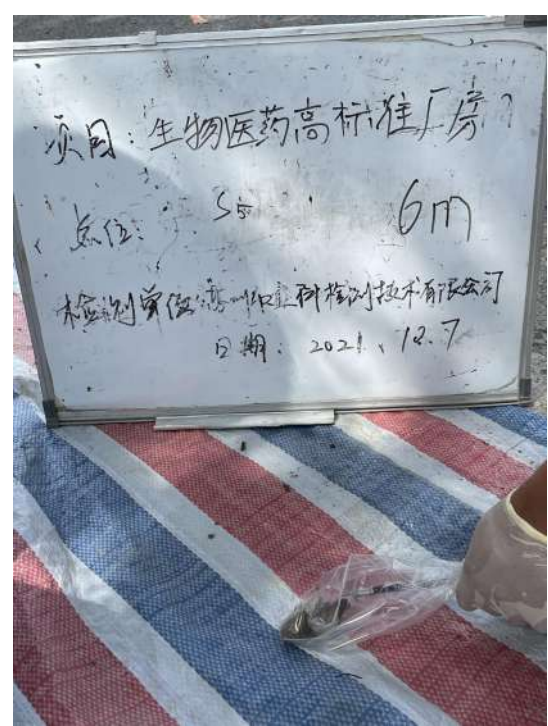 项目：生物医药高标准厂房
点位： S5 6m
检测单位：科检测技术有限公司
日期：2021.12.7